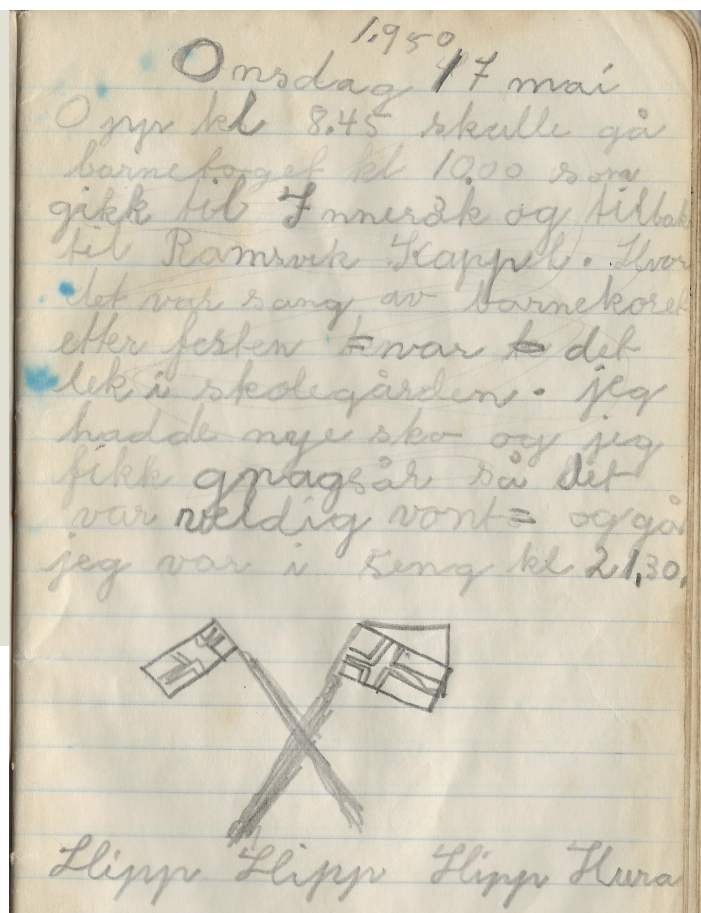 1950
Onsdag 17 mai
Opp kl 8.45 skulle gå
barnetoget kl 10.00 som
gikk til Innersåk og tilbak
til Ramsvik Kappel. Hvor
det var sang av barnekoret
etter festen var det
lek i skolegården. jeg
hadde nye sko og jeg
fikk gnagsår så det
var veldig vont og gå
jeg var i seng kl 21,30.
Hipp Hipp Hipp Hura